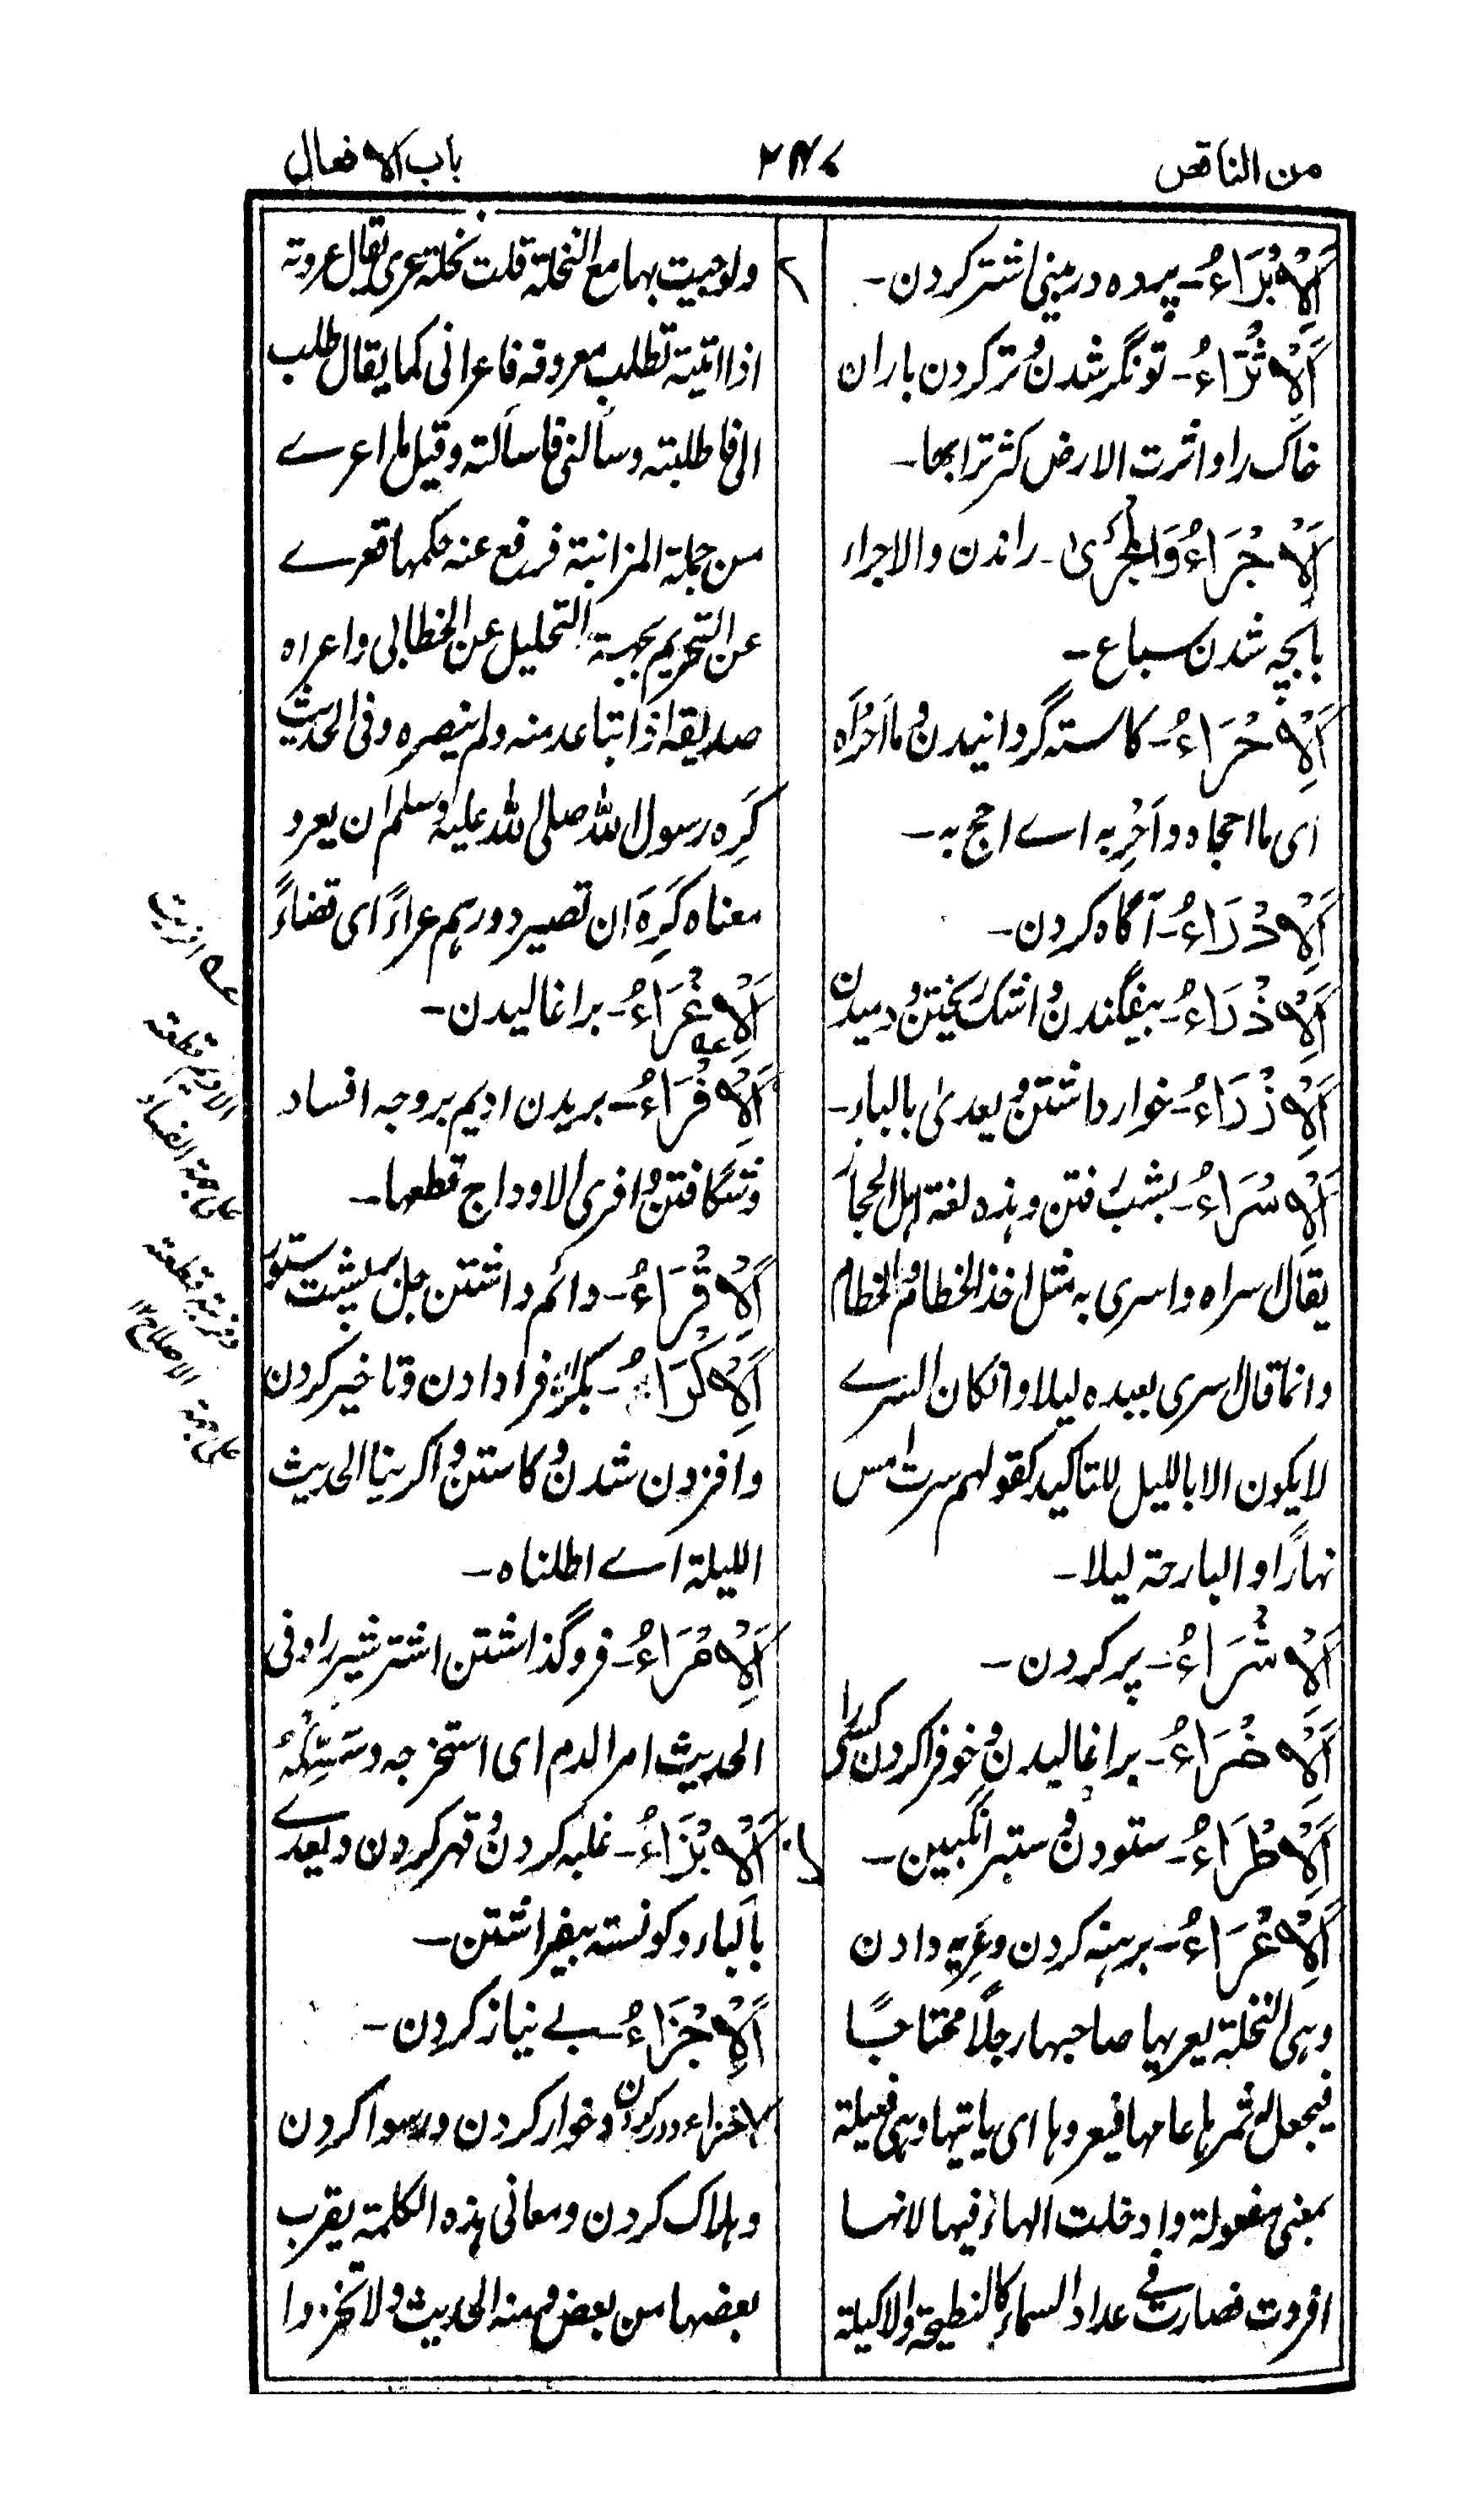 من الناقص
باب الافعال
اَلْاِبْرَاءُ۔ پره در بینی اشتر کردن۔
اَلْاِثْرَاءُ۔ تونگر شدن و تر کردن باران
خاک را و اثرت الارض کثر ترابها۔
اَلْاِجْرَاءُ وَالمُجْرٰی۔ راندن والاجراء
بابچه شدن سباع۔
اَلْاِحْرَاءُ۔ کاسته گردانیدن و ما اَحْرَاه
ای ما احجاه و اَحْرِ به اے احج به۔
اَلْاِدْرَاءُ۔ آگاه کردن۔
اَلْاِذْرَاءُ۔ بیفگندن و اشک ریختن و دمیدن
اَلْاِزْرَاءُ۔ خوار داشتن و یعدی بالباء۔
اَلْاِسْرَاءُ۔ بشب رفتن و هذه لغة اهل الحجاز
یقال اسراه و اسری به مثل اخذ الخطام و بالخطام
وانما قال اسری بعبده لیلا وانکان السرے
لا یکون الا باللیل للتاکید کقولهم سرت امس
نهارًا و البارحة لیلا۔
اَلْاِشْرَاءُ۔ پر کردن۔
اَلْاِضْرَاءُ۔ برا غالیدن و خو فرا کردن کسی را
اَلْاِطْرَاءُ۔ ستودن و ستبر انگبین۔
اَلْاِعْرَاءُ۔ برهنه کردن و عَرِیه دادن
وهی النخلة یعریها صاحبها رجلًا محتاجًا
فیجعل له ثمرها عامها فیعروها ای یاتیها وهی فعیلة
بمعنی مفعولة و ادخلت الهاء فیها لانها
افردت فصارت فی عداد الاسماء کالنطیحة والاکیلة
ولو جیت بها مع النخلة قلت نخلة عری یقال عروته
اذا اتیته تطلب معروفه فاعرانی کما یقال طلب
الی فاطلبته و سألنی فاسألته و قیل لما اعرے
من جملة المزابنة فرفع عنه حکمها قعرے
عن التحریم بجهة التحلیل عن الخطابی و اعراه
صدیقه اذا تباعد منه ولم ینصره و فی الحدیث
کَرِه رسول الله صلی الله علیه وسلم ان یعرو
معناه کَرِهَ ان تصیر دورهم عراءً ای فضاءً
اَلْاِغْرَاءُ۔ برا غالیدن۔
اَلْاِفْرَاءُ۔ بریدن ادیم بروجه افساد
و شگافتن و افری الاوداج قطعها۔
اَلْاِقْرَاءُ۔ دائم داشتن جل بر پشت ستور
اَلْاِکْرَاءُ۔ بکرا فرا دادن و تاخیر کردن
و افزون شدن و کاستن و اکرینا الحدیث
اللیلة اے اطلناه۔
اَلْاِمْرَاءُ۔ فروگذاشتن اشتر شیر را و فی
الحدیث امر الدم ای استخرجه و سَیِّلْهُ
اَلْاِبْزَاءُ۔ غلبه کردن و قهر کردن و یعدے
بالباء و کونسته بیفراشتن۔
اَلْاِجْزَاءُ۔ بے نیاز کردن۔
الاخزاء دور کردن و خوار کردن و رسوا کردن
و هلاک کردن و معانی هذه الکلمة یقرب
بعضها من بعض و منه الحدیث ولا تخزوا